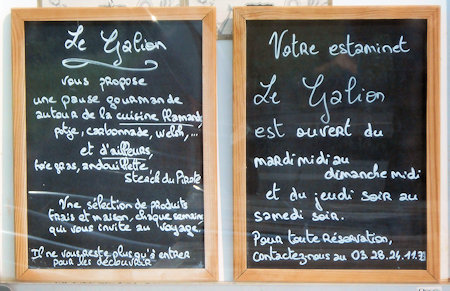 Le Galion
vous propose
une pause gourmande
autour de la cuisine flamande
potje, carbonnade, welsh,...
et d'ailleurs,
foie gras, andouillette,
Steack du Pirate
Une sélection de produits
frais et maison, chaque semaine
qui vous invite au voyage.
Il ne vous reste plus qu'à entrer
pour les découvrir
Votre estaminet
Le Galion
est ouvert du
mardi midi au
dimanche midi
et du jeudi soir au
samedi soir.
Pour toute réservation,
contactez nous au 03.28.24.11.